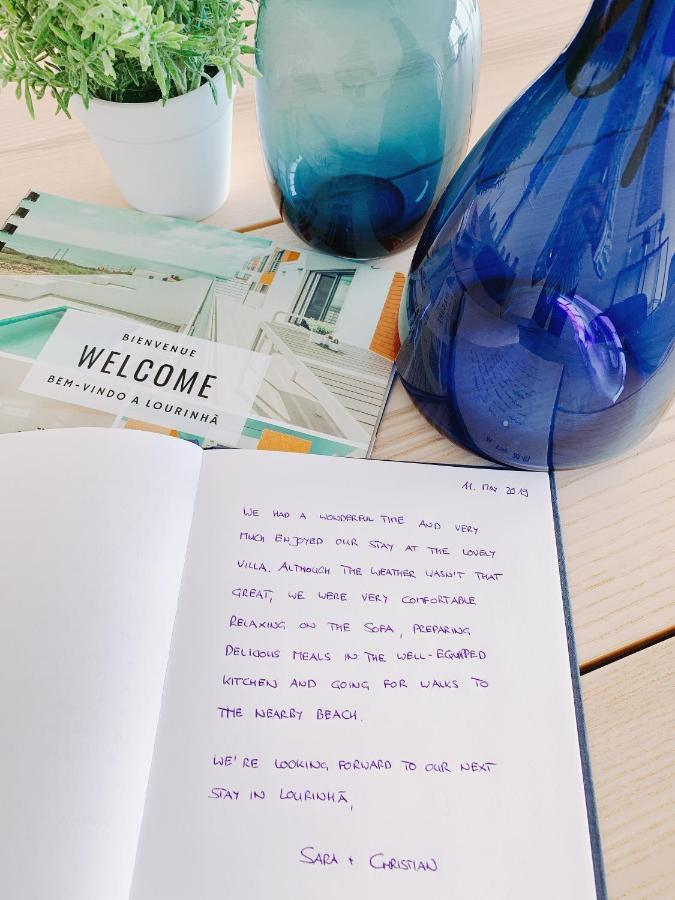 BIENVENUE
WELCOME
BEM-VINDO A LOURINHÃ
11. MAY 2019
WE HAD A WONDERFUL TIME AND VERY
MUCH ENJOYED OUR STAY AT THE LOVELY
VILLA. ALTHOUGH THE WEATHER WASN'T THAT
GREAT, WE WERE VERY COMFORTABLE
RELAXING ON THE SOFA, PREPARING
DELICIOUS MEALS IN THE WELL-EQUIPPED
KITCHEN AND GOING FOR WALKS TO
THE NEARBY BEACH.
WE'RE LOOKING FORWARD TO OUR NEXT
STAY IN LOURINHÃ,
SARA + CHRISTIAN